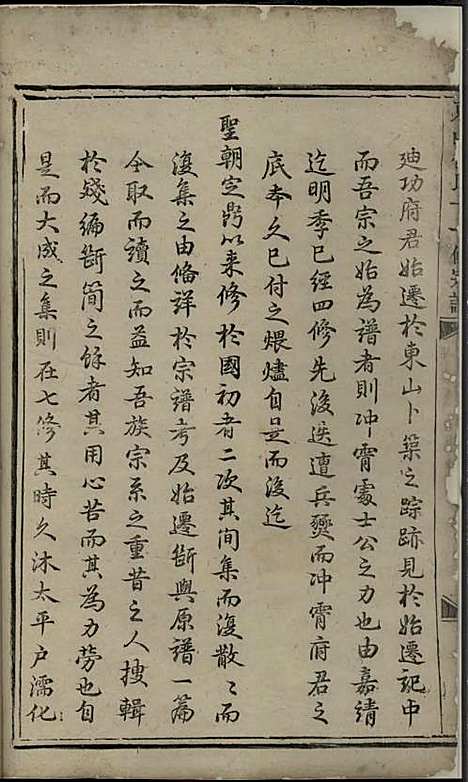 廸功府君始遷於東山卜築之踪跡見於始遷記中
而吾宗之始為譜者則冲霄處士公之力也由嘉靖
迄明季已經四修先後迭遭兵爕而冲霄府君之
底本久已付之煨燼自是而後迄
聖朝定鼎以來修於國初者二次其間集而復散〻而
復集之由偹詳於宗譜考及始遷斷與原譜一篇
今取而讀之而益知吾族宗系之重昔之人搜輯
於殘編斷簡之餘者其用心苦而其為力勞也自
是而大成之集則在七修其時久沐太平戶濡化